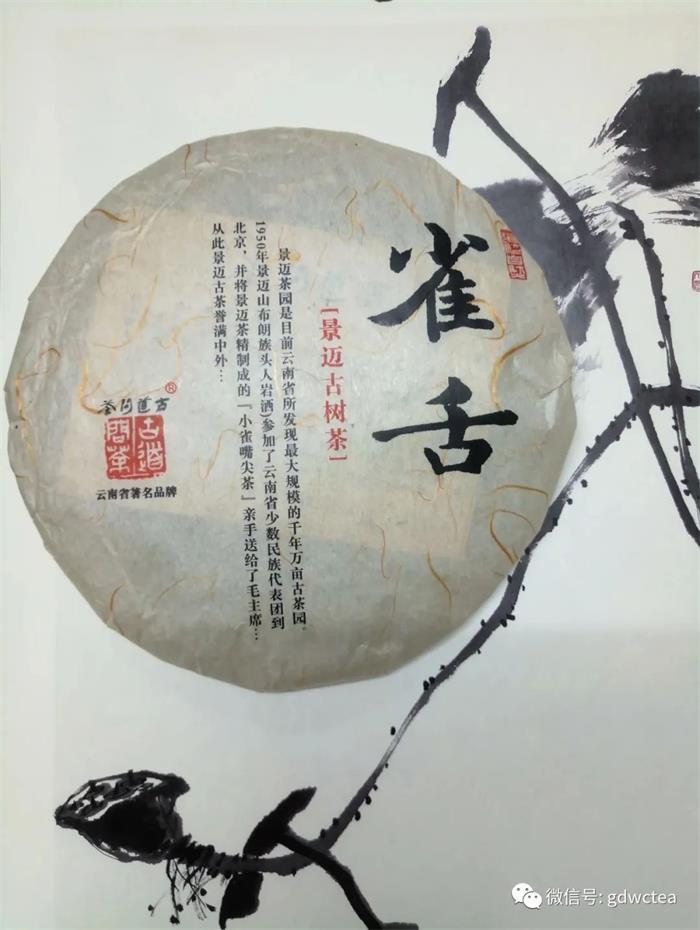 雀舌
[景迈古树茶]
景迈茶园是目前云南省所发现最大规模的千年万亩古茶园。
1950年景迈山布朗族头人岩洒)参加了云南省少数民族代表团到
北京，并将景迈茶精制成的「小雀嘴尖茶」亲手送给了毛主席…
从此景迈古茶誉满中外…
古道问茶®
古道
问茶
云南省著名品牌
微信号: gdwctea